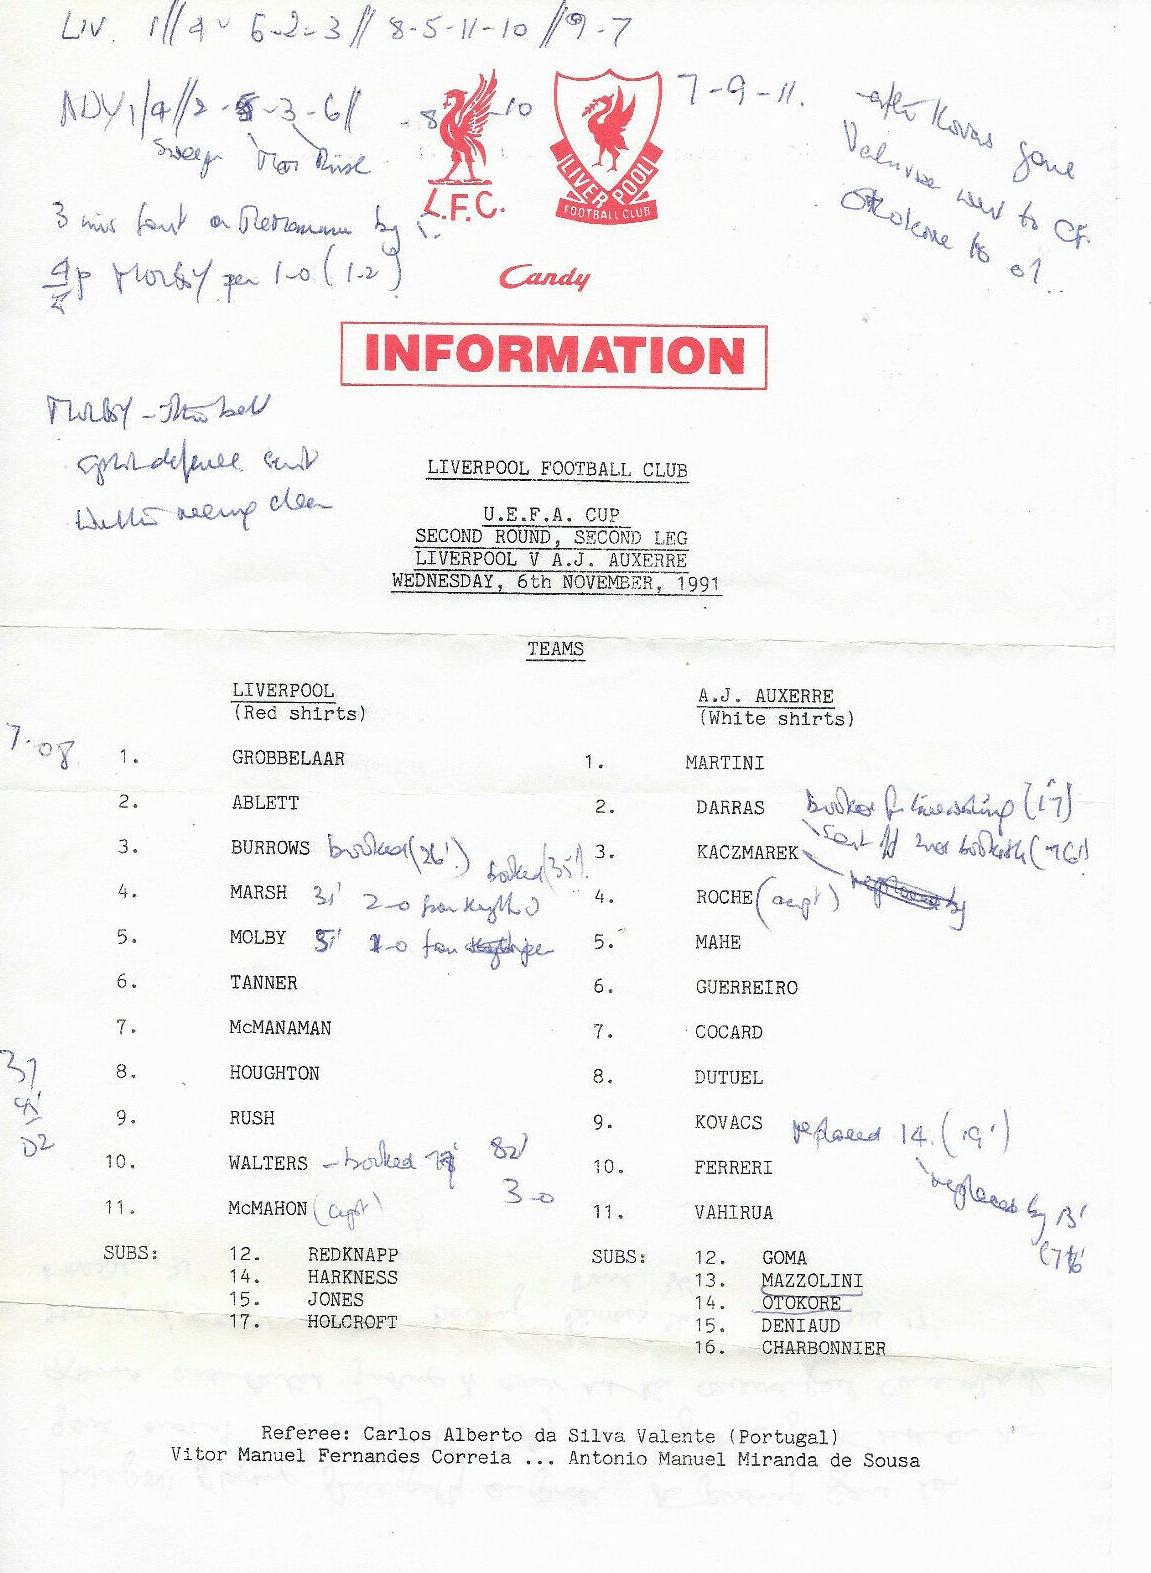 LIV. 1//4 - 6-2-3// 8-5-11-10 //9-7
1/4//2 - 5-3-6// - 8 - 10 7-9-11.
Sweep Mar
after Kovacs gone
went to CF.
Otokore to
3 mins foul on McManaman by
Molby pen 1-0 (1-2)
L.F.C.
LIVERPOOL
FOOTBALL CLUB
Candy
INFORMATION
Molby -
defence
LIVERPOOL FOOTBALL CLUB
U.E.F.A. CUP
SECOND ROUND, SECOND LEG
LIVERPOOL V A.J. AUXERRE
WEDNESDAY, 6th NOVEMBER, 1991
TEAMS
LIVERPOOL
(Red shirts)
A.J. AUXERRE
(White shirts)
7.08
1. GROBBELAAR 1. MARTINI
2. ABLETT 2. DARRAS booked for (17)
sent off 2nd (76')
3. BURROWS booked (26') booked (35') 3. KACZMAREK
4. MARSH 31' 2-0 from 4. ROCHE (capt) replaced by
5. MOLBY 1-0 from pen 5. MAHE
6. TANNER 6. GUERREIRO
7. McMANAMAN 7. COCARD
37
8. HOUGHTON 8. DUTUEL
D2
9. RUSH 9. KOVACS replaced 14. (19')
10. WALTERS - booked 82' 10. FERRERI
3-0
replaced by 13'
11. McMAHON (capt) 11. VAHIRUA
SUBS: 12. REDKNAPP SUBS: 12. GOMA
14. HARKNESS 13. MAZZOLINI
15. JONES 14. OTOKORE
17. HOLCROFT 15. DENIAUD
16. CHARBONNIER
Referee: Carlos Alberto da Silva Valente (Portugal)
Vitor Manuel Fernandes Correia ... Antonio Manuel Miranda de Sousa